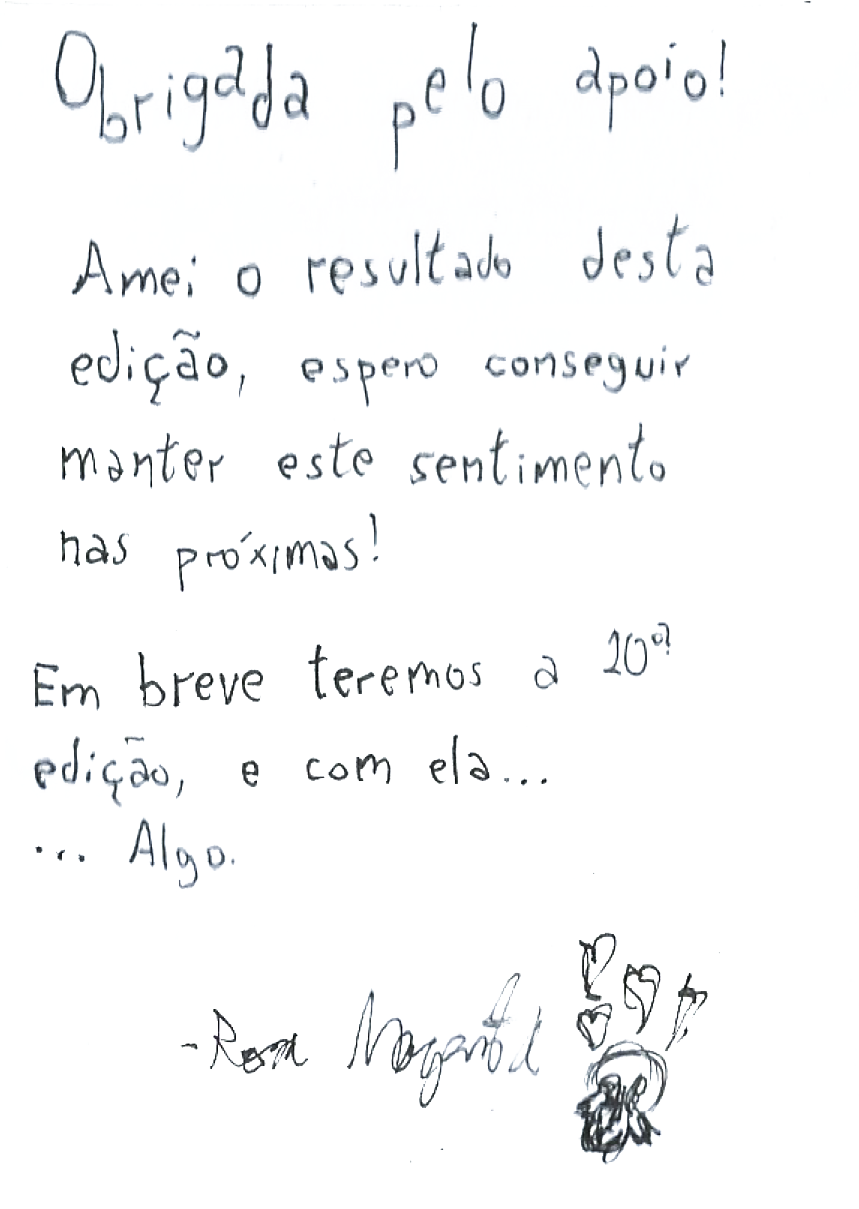 Obrigada pelo apoio!
Amei o resultado desta
edição, espero conseguir
manter este sentimento
nas próximas!
Em breve teremos a 10ª
edição, e com ela...
... Algo.
- Rosa Magenta